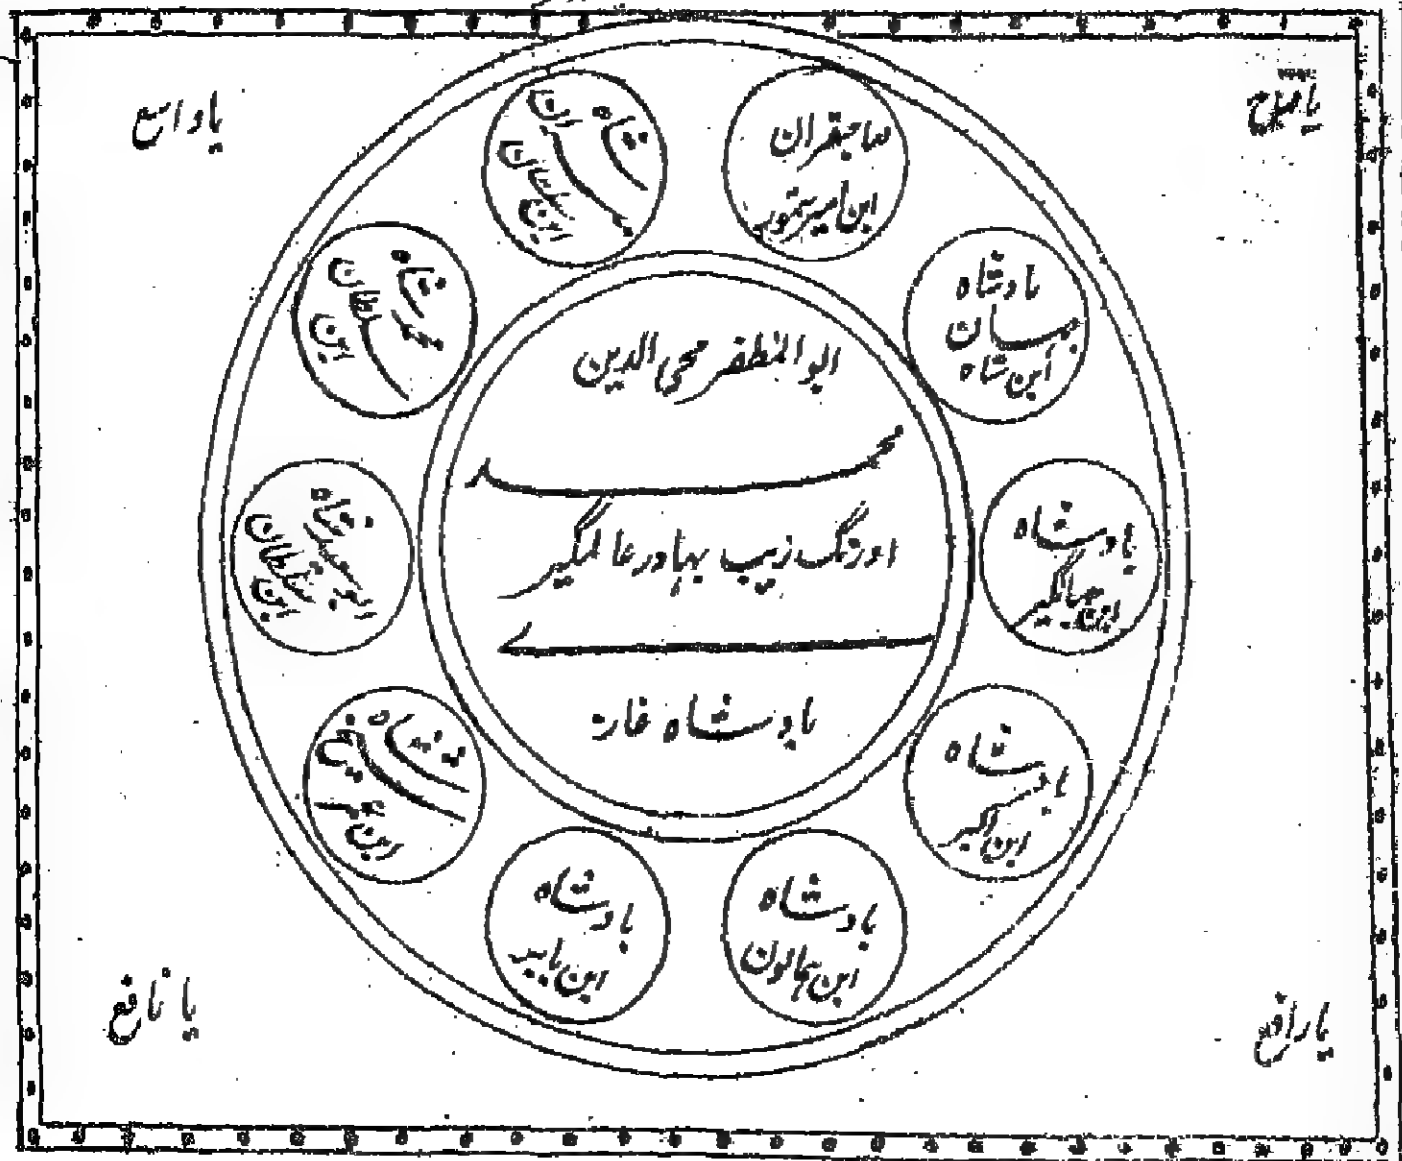 یا واسع
ابو المظفر محی الدین
محمد
اورنگ زیب بہادر عالمگیر
بادشاہ غازی
صاحبقران
ابن امیر تیمور
بادشاہ
ابن شاہ
بادشاہ
ابن جہانگیر
بادشاہ
ابن اکبر
بادشاہ
ابن ہمایون
بادشاہ
ابن بابر
شاہ
ابن عمر شیخ
شاہ
ابو سعید
ابن سلطان
شاہ
محمد
ابن سلطان
شاہ
ابن سلطان
یا رافع
یا نافع